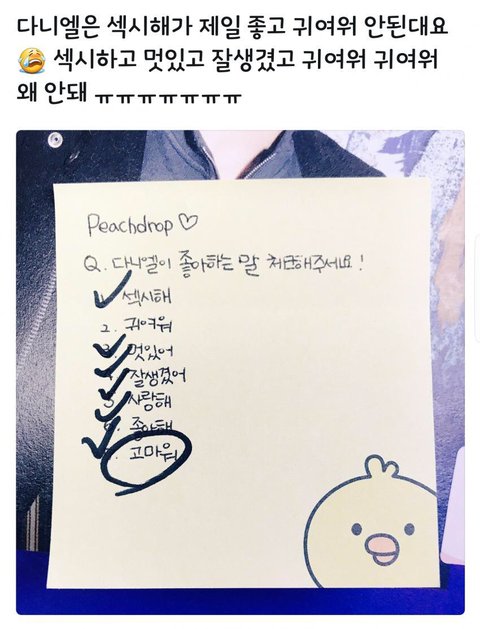 다니엘은 섹시해가 제일 좋고 귀여워 안된대요
😭 섹시하고 멋있고 잘생겼고 귀여워 귀여워
왜 안돼 ㅠㅠㅠㅠㅠㅠㅠ
Peachdrop♡
Q. 다니엘이 좋아하는 말 체크해주세요!
섹시해
2. 귀여워
3. 멋있어
4. 잘생겼어
5. 사랑해
6. 좋아해
고마워